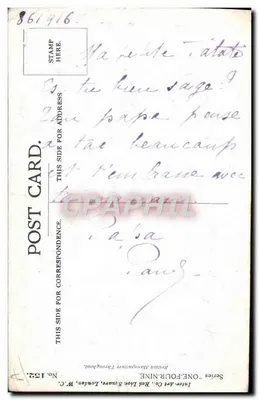 861916
STAMP
HERE.
POST CARD.
THIS SIDE FOR ADDRESS
THIS SIDE FOR CORRESPONDENCE.
Ma petite Tatate
Es tu bien sage?
Ton papa pense
a toi beaucoup
et t'embrasse avec
CPAPHIL
Papa
Inter-Art Co., Red Lion Square, London, W.C.
British Manufacture Throughout.
Series "ONE-FOUR-NINE"
No. 152.